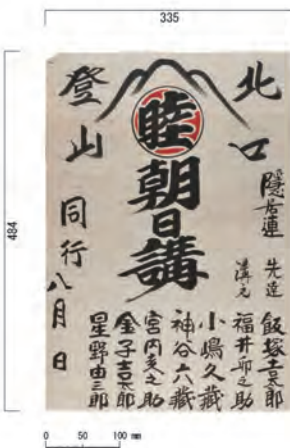 335
484
北口
登山
睦
朝日講
隠居連
先達 飯塚吉太郎
講元 福井卯之助
小嶋久蔵
神谷六蔵
宮内亥之助
金子吉太郎
星野由三郎
同行
八月 日
0 50 100 mm